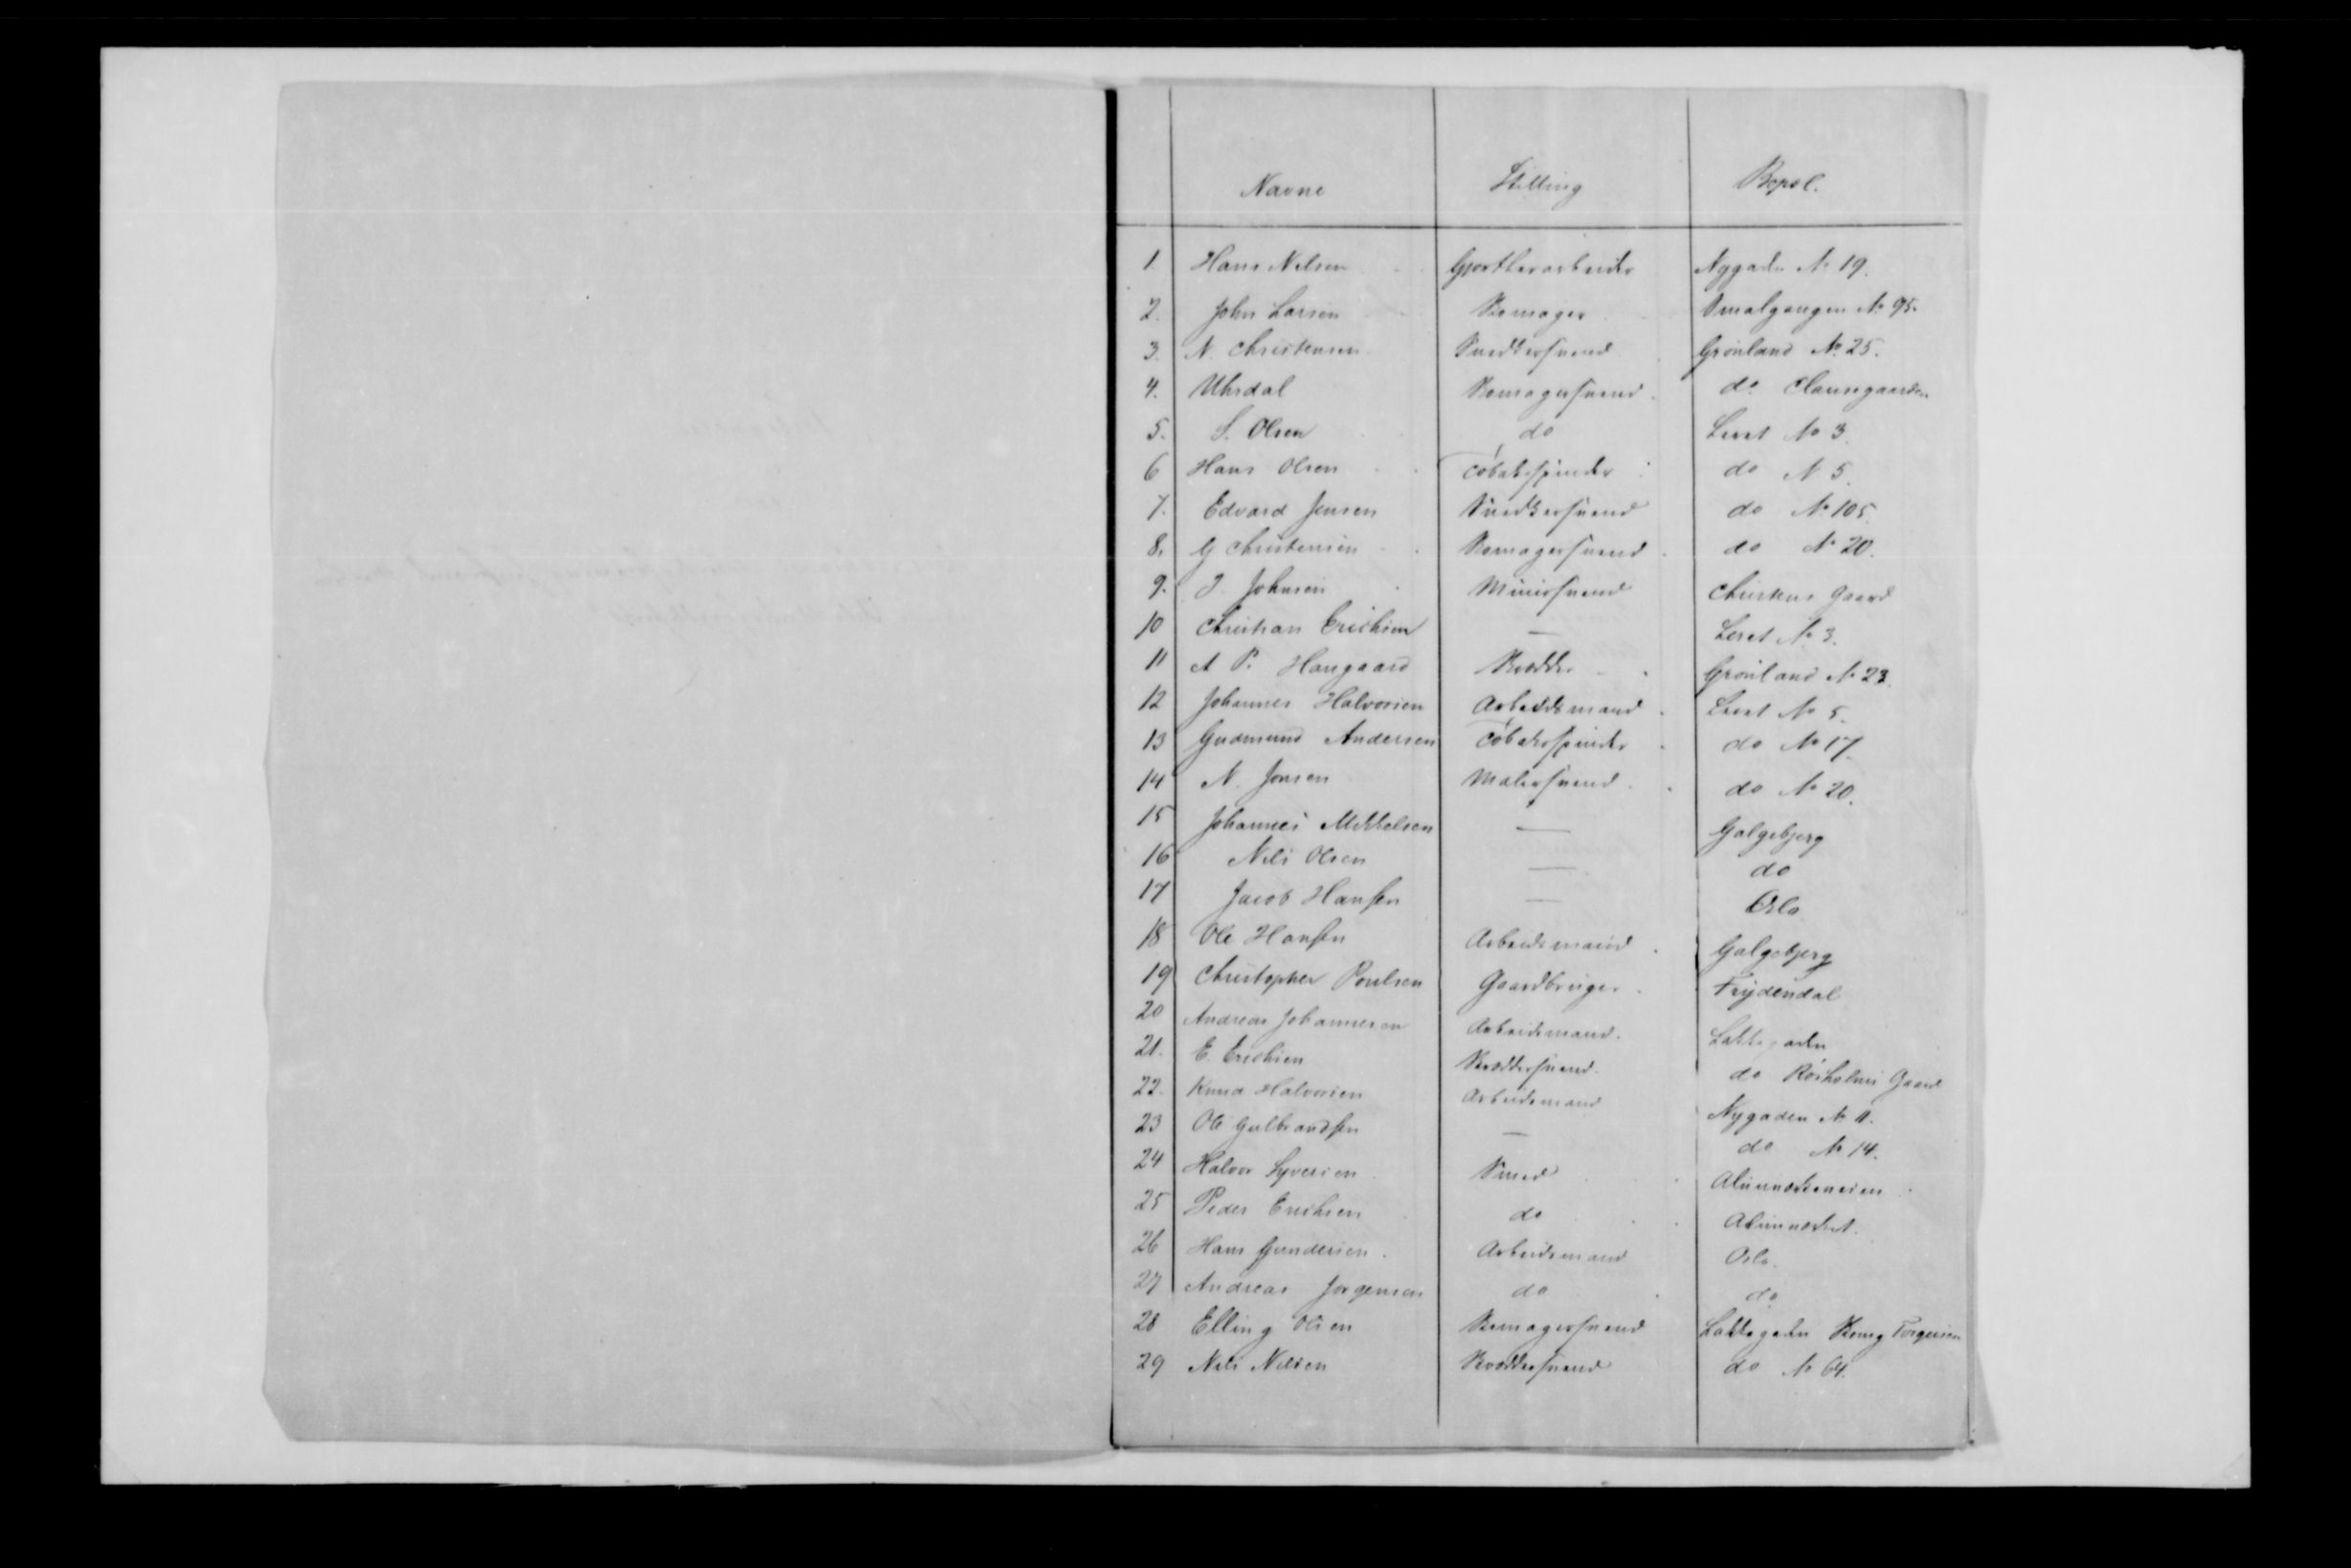 Navne Stilling Bopæl.
1. Hans Nilsen Gjørtlerarbeider Nygaden No 19.
2. John Larsen Skomager Smalgangen No 95.
3. N. Christensen Snedkersvend Grönland No 25.
4. Uhrdal Skomagersvend do Clausgaarden
5. S. Olsen do Leret No 3.
6 Hans Olsen Tobakspinder do N 5.
7. Edvard Jensen Snedkersvend do No 105.
8. G Christensen Skomagersvend do No 20.
9. J. Johnsen Muursvend Christens Gaard
10 Christian Erichsen — Leret No 3.
11 A P. Haugaard Skrædder Grönland No 23.
12 Johannes Halvorsen Arbeidsmand Leret No 5.
13 Gudmund Andersen Tobakspinder do No 17.
14 N. Jonsen Malersvend do No 20.
15 Johannes Mikkelsen — Galgebjerg
16 Nils Olsen — do
17 Jacob Hansen — Oslo
18 Ole Hansen Arbeidsmand Galgebjerg
19 Christopher Poulsen Gaardbruger Frydendal
20 Andreas Johannesen Arbeidsmand. Lakkegaden
21. E. Erichsen Skræddersvend. do Röiholms Gaard
22. Knud Halvorsen Arbeidsmand Nygaden No 11.
23 Ole Gulbrandsen — do No 14.
24 Halvor Syversen Smed
25 Peder Erichsen do
26 Hans Gundersen. Arbeidsmand Oslo.
27 Andreas Jørgensen do do
28 Elling Olsen Skomagersvend Lakkegaden Skomg Torgersen
29 Nils Nilsen Skræddersvend do No 64.